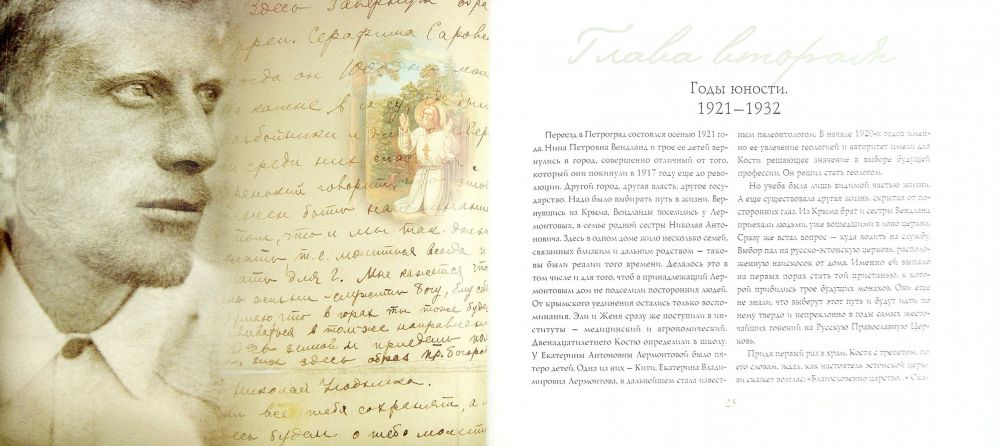 Здесь завернут обра
Серафима Саровс
когда он
на камне в лесу,
среди них спас
говорит
что и мы так
т.е. молитвой всегда и
для Е. Мне кажется что
жизни - служить Богу, Ему
что в горах ты тоже буде
в том же направлени
зимой и приведет по
еще здесь образ пр. Богоро
Николай Людмила.
все тебя сохранят, а м
здесь будем о тебе молит
Глава вторая
Годы юности.
1921–1932
Переезд в Петроград состоялся осенью 1921 го-
да. Нина Петровна Вендланд и трое ее детей вер-
нулись в город, совершенно отличный от того,
который они покинули в 1917 году еще до ре-
волюции. Другой город, другая власть, другое госу-
дарство. Надо было выбирать путь в жизни. Вер-
нувшись из Крыма, Вендланды поселились у Лер-
монтовых, в семье родной сестры Николая Анто-
новича. Здесь в одном доме жило несколько семей,
связанных близким и дальним родством – тако-
вы были реалии того времени. Делалось это в
том числе и для того, чтоб в принадлежащий Лер-
монтовым дом не подселили посторонних людей.
От крымского уединения остались только воспо-
минания. Эли и Женя сразу же поступили в ин-
ституты – медицинский и агрономический.
Двенадцатилетнего Костю определили в школу.
У Екатерины Антоновны Лермонтовой было пя-
теро детей. Одна из них – Кити, Екатерина Влади-
мировна Лермонтова, в дальнейшем стала извест-
ным палеонтологом. В начале 1920-х годов имен-
но ее увлечение геологией и авторитет имели для
Кости решающее значение в выборе будущей
профессии. Он решил стать геологом.
Но учеба была лишь видимой частью жизни.
А еще существовала другая жизнь, скрытая от по-
сторонних глаз. Из Крыма брат и сестры Вендланд
приехали людьми, уже вошедшими в лоно церкви.
Сразу же встал вопрос – куда ходить на службу.
Выбор пал на русско-эстонскую церковь, располо-
женную наискосок от дома. Именно ей выпало
на первых порах стать той пристанью, к кото-
рой прибились трое будущих монахов. Они еще
не знали, что выберут этот путь и будут идти по
нему твердо и непреклонно в годы самых жесто-
чайших гонений на Русскую Православную Цер-
ковь.
Придя первый раз в храм, Костя с трепетом, по
его словам, ждал, как настоятель эстонской церк-
ви скажет возглас: «Благословенно царство...» Ска-
25